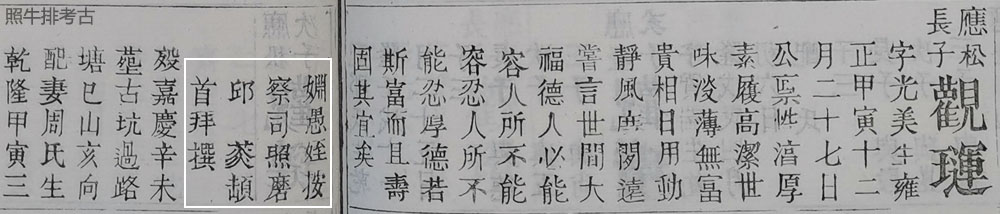 照牛排考古
應松
長子
觀璉
字光美生雍
正甲寅十二
月二十七日
公禀性湻厚
素履高潔世
味淡薄無富
貴相日用動
靜風度閎遠
嘗言世間大
福德人必能
容人所不能
容忍人所不
能忍厚德若
斯富而且壽
固其宜矣
姻愚姪按
察司照磨
邱菼頓
首拜撰
歿嘉慶辛未
塟古坑過路
塘巳山亥向
配妻周氏生
乾隆甲寅三